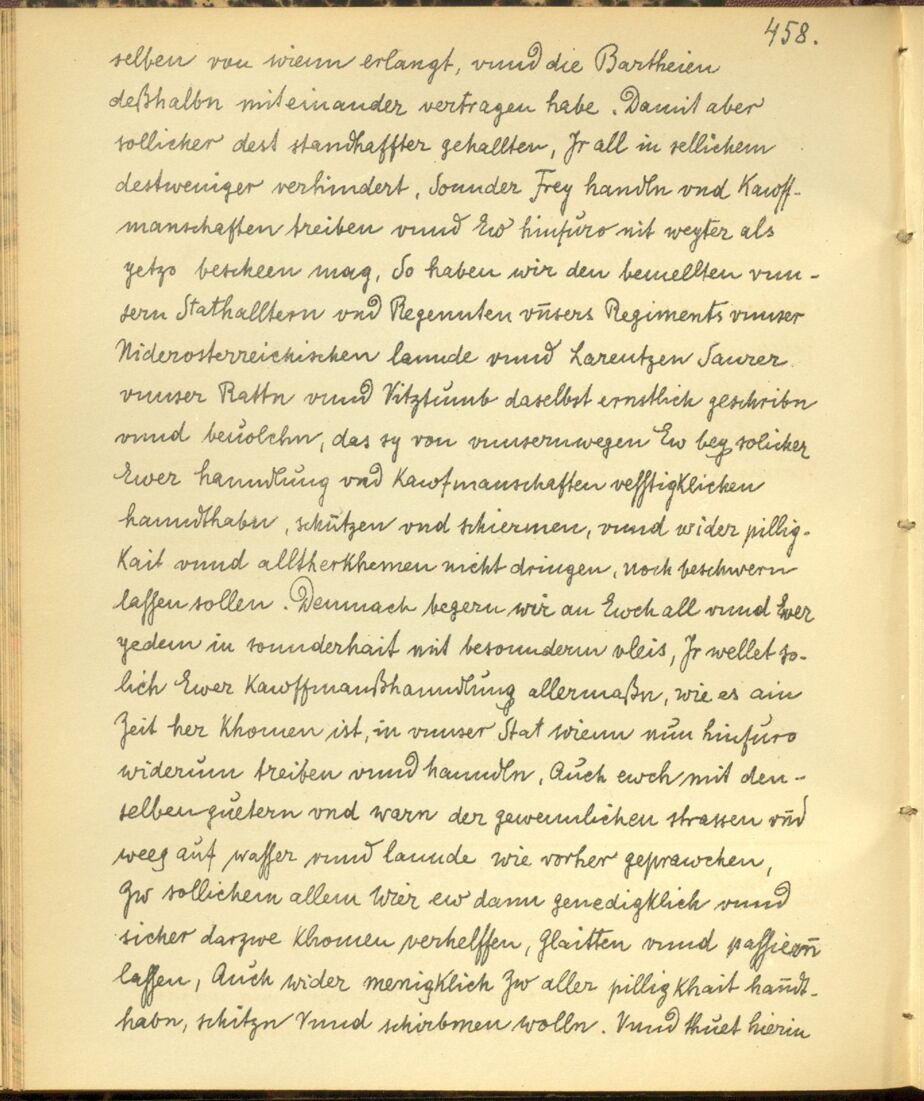 458.
selben von wienn erlangt, vnnd die Bartheien
deßhalbn miteinander vertragen habe. Damit aber
sollicher dest standhaffter gehallten, Jr all in sellichem
destweniger verhindert, Sonnder Frey handln vnd Kauff-
manschaften treiben vnnd Ew hinfuro nit weyter als
yetzo bescheen mag, So haben wir den bemellten vnn-
sern Stathalltern vnd Regennten vn̄sers Regiments vnnser
Niderosterreichischen lannde vnnd Larentzen Saurer
vnnser Rattn vnnd Vitztumb daselbst ernstlich geschribn
vnnd beuolchn, das sy von vnnsernwegen Ew bey solicher
Ewer hanndlung vnd Kawfmanschaften vesstigKlichen
hanndthabn, schützen vnd schiermen, vnnd wider pillig-
Kait vnnd alltherKhemen nicht dringen, noch beschwern
lassen sollen. Demnach begern wir an Ewch all vnnd Ewer
yedem in sonnderhait mit besonnderm vleis, Jr wellet so-
lich Ewer Kawffmanßhanndlung allermaßn, wie es ain
Zeit her Khomen ist, in vnnser Stat wienn nun hinfuro
widerum treiben vnnd hanndln, Auch ewch mit den-
selben guetern vnd warn der gewennlichen strassen vn̄d
weeg auf wasser vnnd lannde wie vorher geprawchen,
Zw sollichem allem Wier ew dann genedigKlich vnnd
sicher darzwe Khomen verhelffen, Glaitten vnnd passieren̄
lassen, Auch wider menigklich Zw aller pilligKhait han̄dt-
habn, schitzn Vnnd schirbmen wolln. Vnnd thuet hierin